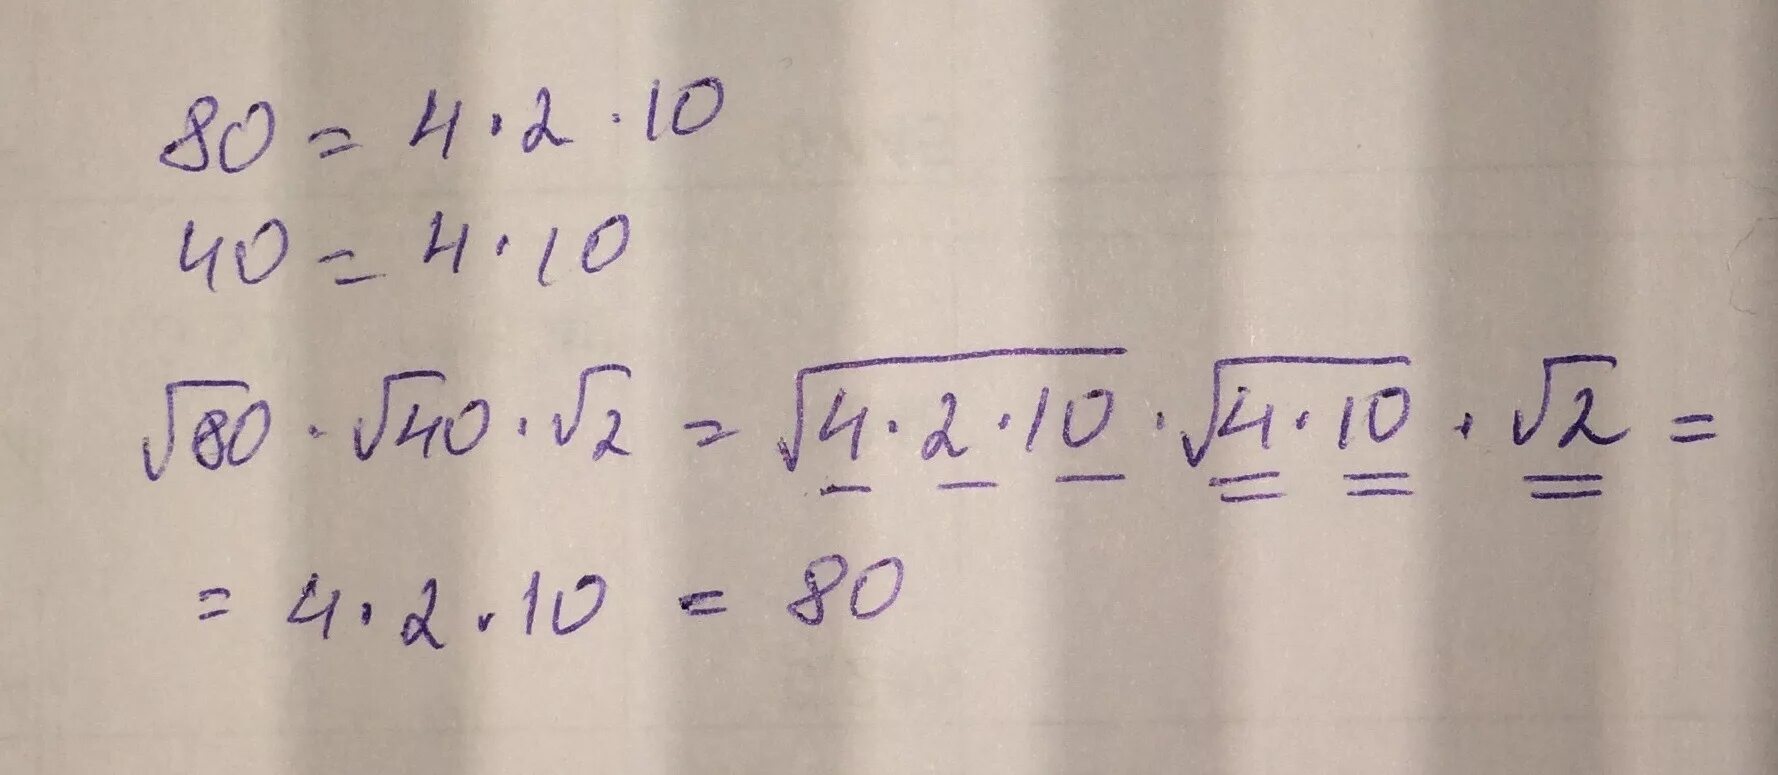 80 = 4 · 2 · 10
40 = 4 · 10
√80 · √40 · √2 = √4 · 2 · 10 · √4 · 10 · √2 =
= 4 · 2 · 10 = 80